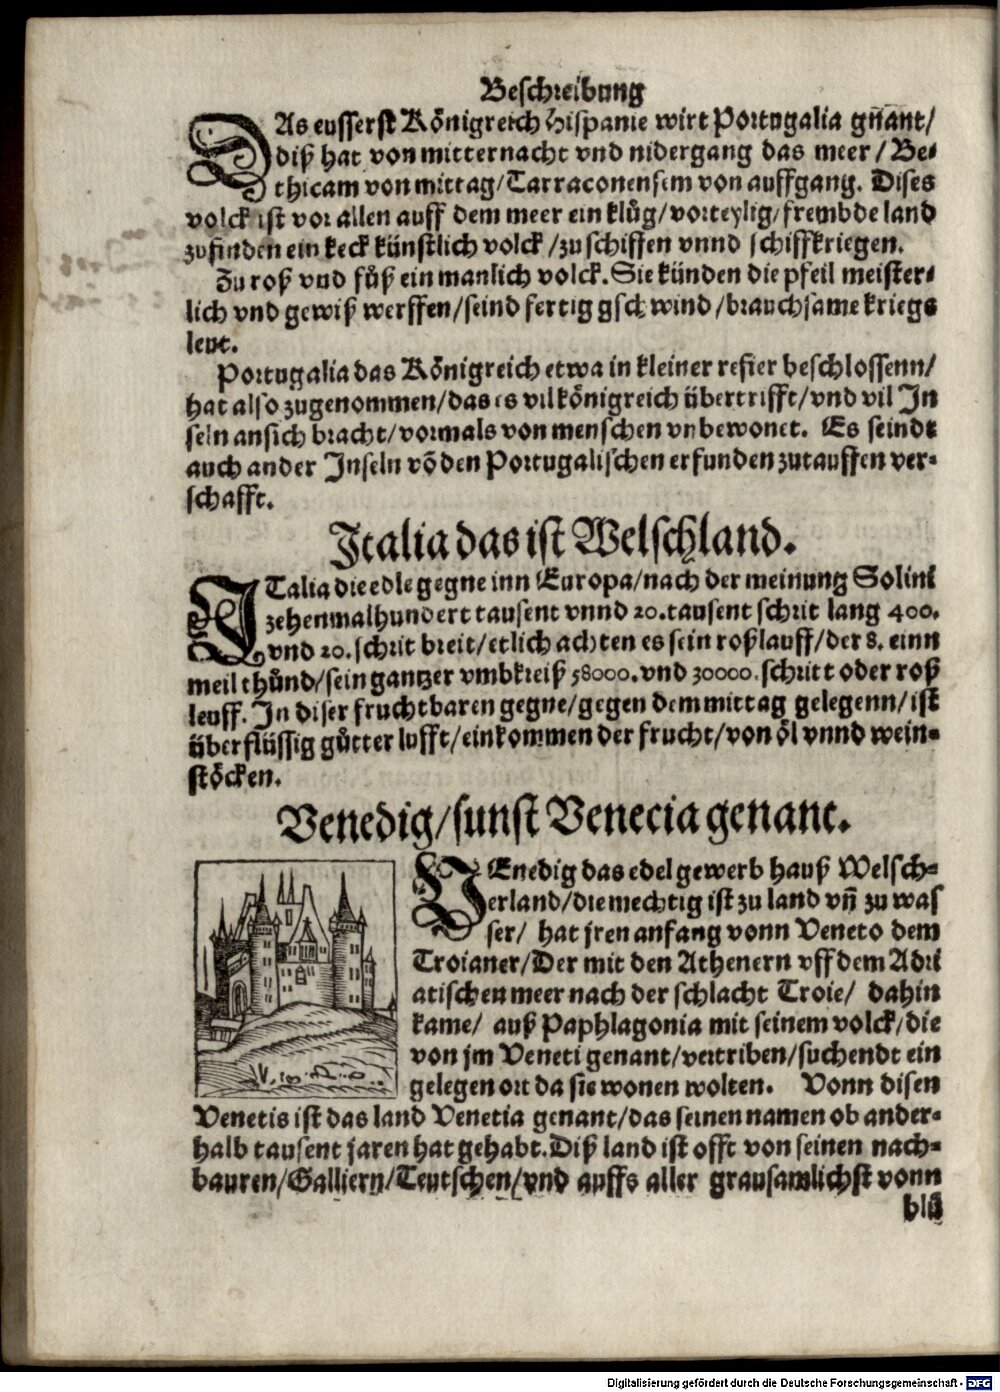 Beschreibung
DAs eusserst Königreich Hispanie wirt Portugalia gnãnt/
diß hat von mitternacht vnd nidergang das meer/ Be-
thicam von mittag/Tarraconensem von auffgang. Dises
volck ist vor allen auff dem meer ein klůg/vorteylig/frembde land
zufinden ein keck künstlich volck/zu schiffen vnnd schiffkriegen.
Zu roß vnd fůß ein manlich volck. Sie künden die pfeil meister-
lich vnd gewiß werffen/seind fertig gschwind/brauchsame kriegs
leut.
Portugalia das Königreich etwa in kleiner refier beschlossenn/
hat also zugenommen/das es vil königreich übertrifft/vnd vil In
seln an sich bracht/vormals von menschen vnbewonet. Es seindt
auch ander Inseln võ den Portugalischen erfunden zutauffen ver-
schafft.
Italia das ist Welschland.
ITalia die edle gegne inn Europa/nach der meinung Solini
zehenmalhundert tausent vnnd 20.tausent schrit lang 400.
vnd 20.schrit breit/etlich achten es sein roßlauff/der 8. einn
meil thůnd/sein gantzer vmbkreiß 58000.vnd 30000.schritt oder roß
leuff. In diser fruchtbaren gegne/gegen dem mittag gelegenn/ist
überflüssig gůtter lufft/einkommen der frucht/von öl vnnd wein-
stöcken.
Venedig/sunst Venecia genant.
VEnedig das edel gewerb hauß Welsch-
erland/die mechtig ist zu land vñ zu was
ser/ hat jren anfang vonn Veneto dem
Troianer/Der mit den Athenern vff dem Adri
atischen meer nach der schlacht Troie/ dahin
kame/ auß Paphlagonia mit seinem volck/die
von jm Veneti genant/vertriben/suchendt ein
gelegen ort da sie wonen wolten. Vonn disen
Venetis ist das land Venetia genant/das seinen namen ob ander-
halb tausent jaren hat gehabt.Diß land ist offt von seinen nach-
bauren/Galliern/Teutschen/vnd auffs aller grausamlichst vonn
blů
Digitalisierung gefördert durch die Deutsche Forschungsgemeinschaft - DFG